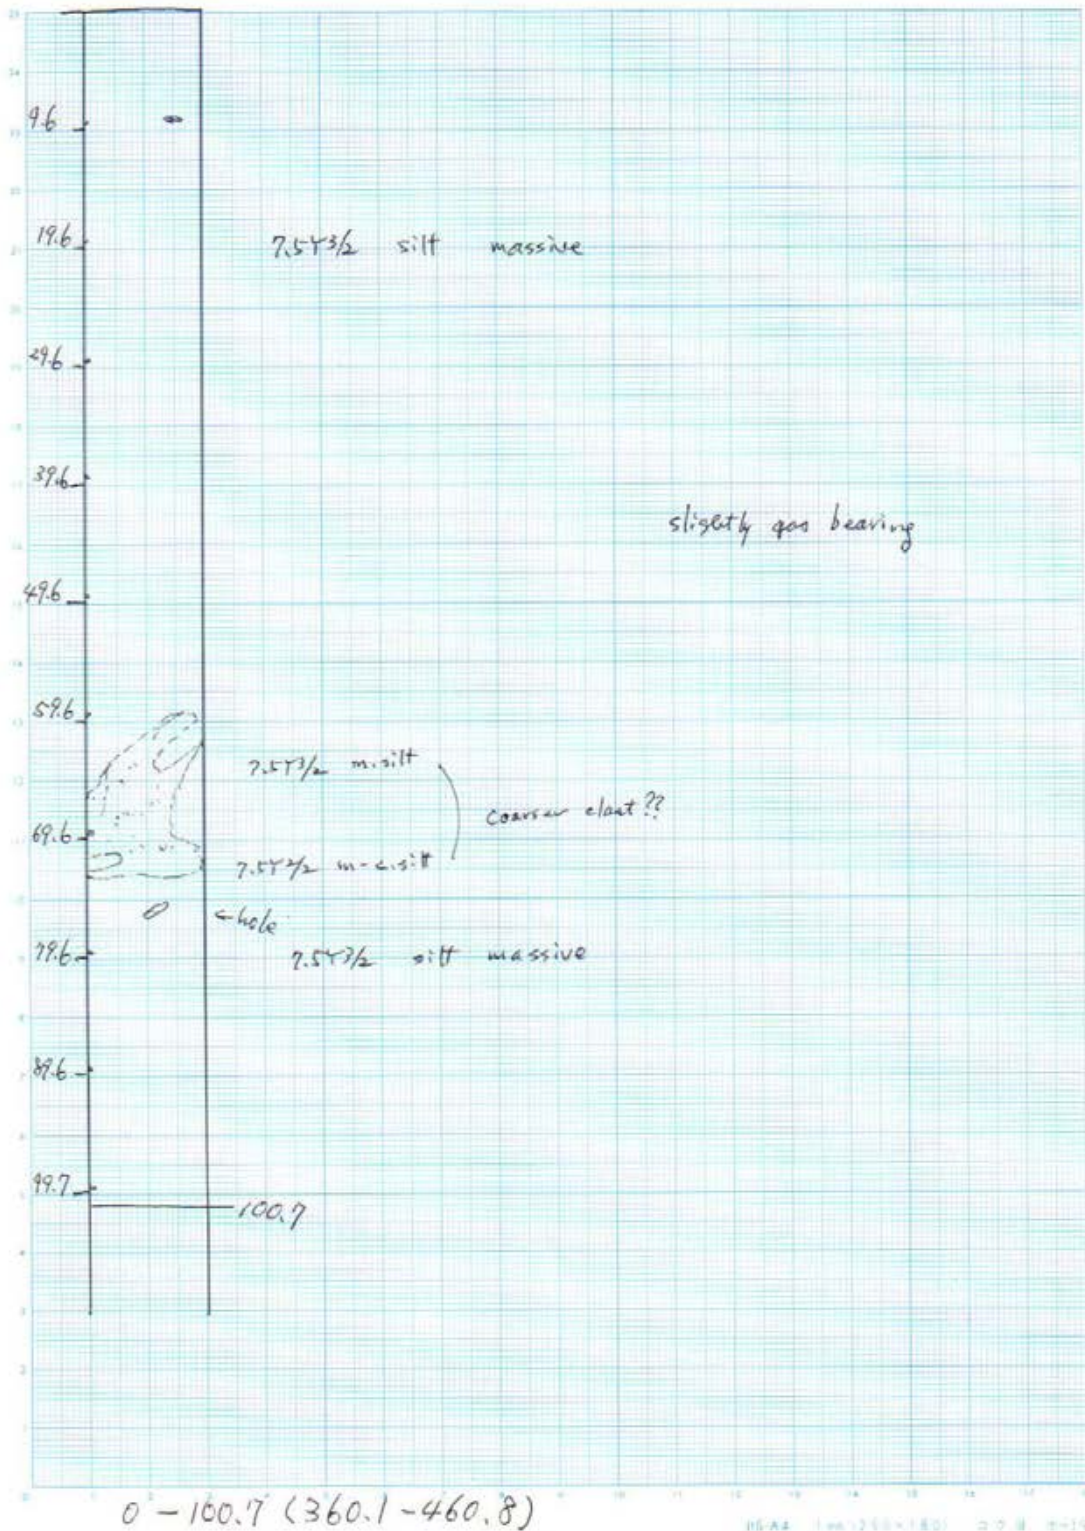 9.6
19.6
7.5Y3/2 silt massive
29.6
39.6
slightly gas bearing
49.6
59.6
7.5Y3/2 m.silt
coarser clast??
69.6
7.5Y2/2 m-c.silt
←hole
79.6
7.5Y3/2 silt massive
89.6
99.7
100.7
0-100.7 (360.1-460.8)